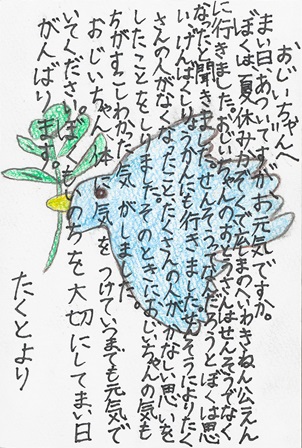 おじいちゃんへ
まい日あついですがお元気ですか。
ぼくは夏休みかぞくでへいわきねん公えん
に行きました。おじいちゃんのおとうさんはせんそうでなく
なったと聞きました。せんそうってなんだろうとぼくは思
い、げんばくしりょうかんにも行きました。せんそうによりたく
さんの人がなくなったことたくさんの人がかなしい思いを
したことをしりました。そのときにおじいちゃんの気も
ちがすこしわかった気がしました。
おじいちゃん、体に気をつけていつまでも元気で
いてください。ぼくもいのちを大切にしてまい日
がんばります。
たくとより